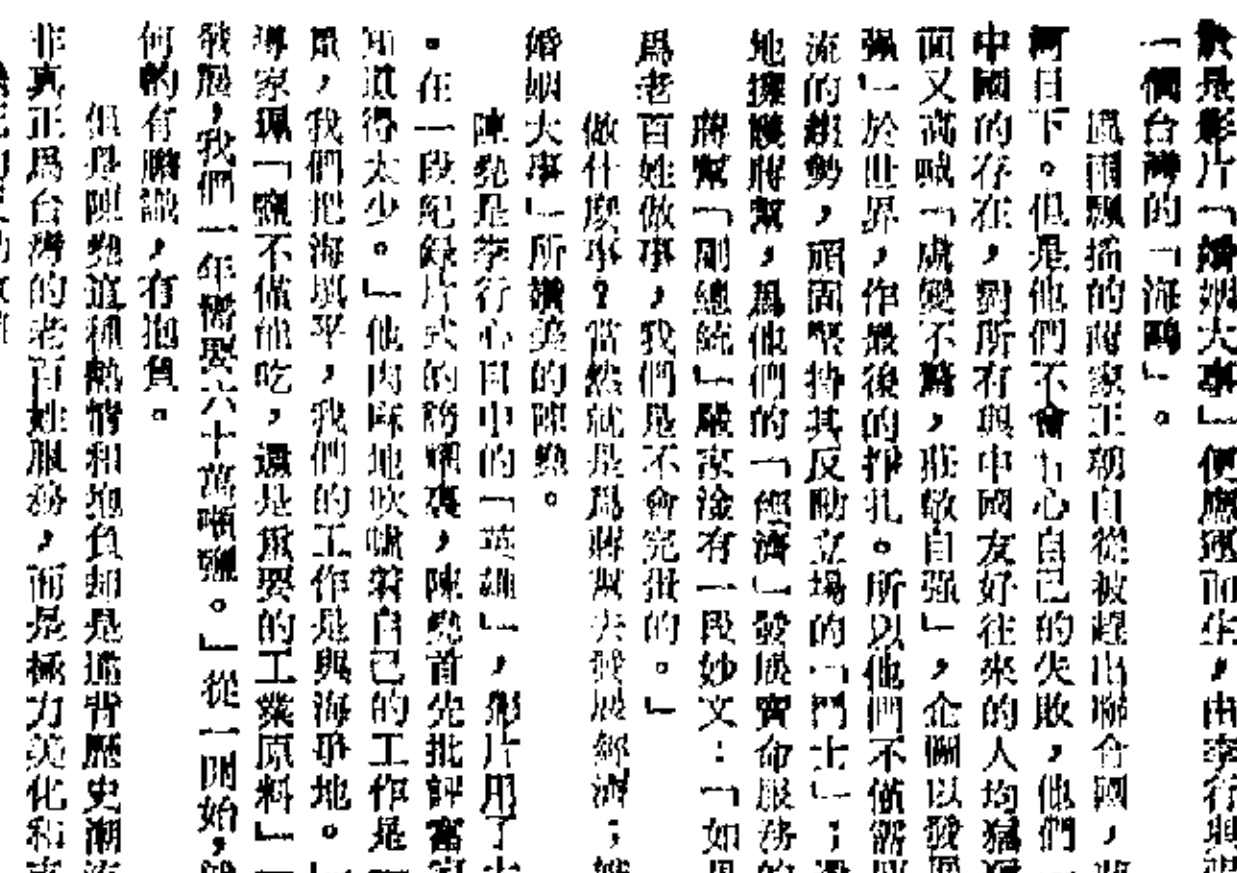 於是影片「婚姻大事」便應運而生,由李行與
一個台灣的「海鷗」。
風雨飄搖的蔣家王朝自從被趕出聯合國,蔣
河日下。但是他們不會甘心自己的失敗,他們一
中國的存在,對所有與中國友好往來的人均猖狂
面又高喊「處變不驚,莊敬自强」,企圖以發展
强」於世界,作最後的掙扎。所以他們不僅需要
流的趨勢,頑固堅持其反動立場的「鬥士」;還
地擁護蔣幫,爲他們的「經濟」發展賣命服務的
蔣幫「副總統」嚴家淦有一段妙文:「如果
爲老百姓做事,我們是不會完蛋的。」
做什麼事?當然就是爲蔣幫去發展經濟;
婚姻大事」所讚美的陳堯。
陳堯是李行心目中的「英雄」,影片用了大
。在一段紀錄片式的訪問裏,陳堯首先批評
知道得太少。」他肉麻地吹噓着自己的工作是
眾,我們把海填平,我們的工作是與海爭地。」
導家珮「鹽不僅能吃,還是重要的工業原料」
發展,我們一年需要六十萬噸鹽。」從一開始,
何的有膽識,有抱負。
但是陳堯這種熱情和抱負却是違背歷史潮流
非真正爲台灣的老百姓服務,而是極力美化和